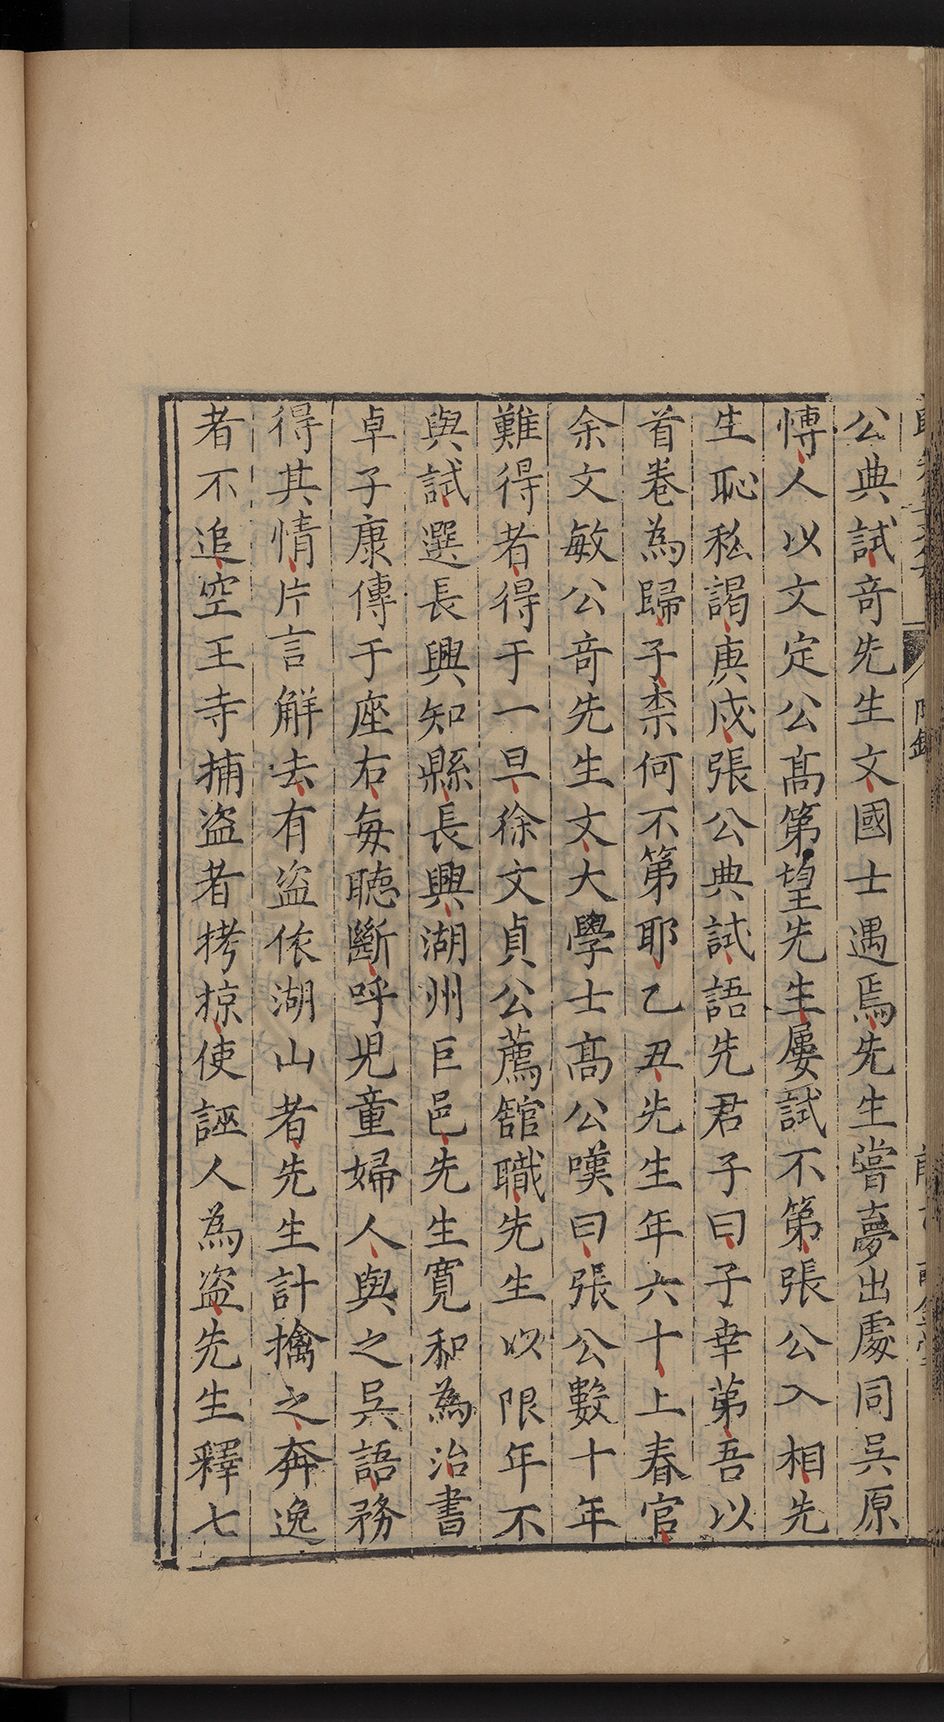 公典試奇先生文國士遇焉先生嘗夢出處同吳原
博人以文定公髙第望先生屢試不第張公入相先
生恥私謁庚戌張公典試語先君子曰子幸第吾以
首卷為歸子柰何不第耶乙丑先生年六十上春官
余文敏公奇先生文大學士髙公嘆曰張公數十年
難得者得于一旦徐文貞公薦舘職先生以限年不
與試選長興知縣長興湖州巨邑先生寬和為治書
卓子康傳于座右每聽斷呼兒童婦人與之吳語務
得其情片言觧去有盜依湖山者先生計擒之奔逸
者不追空王寺捕盜者拷掠使誣人為盜先生釋七